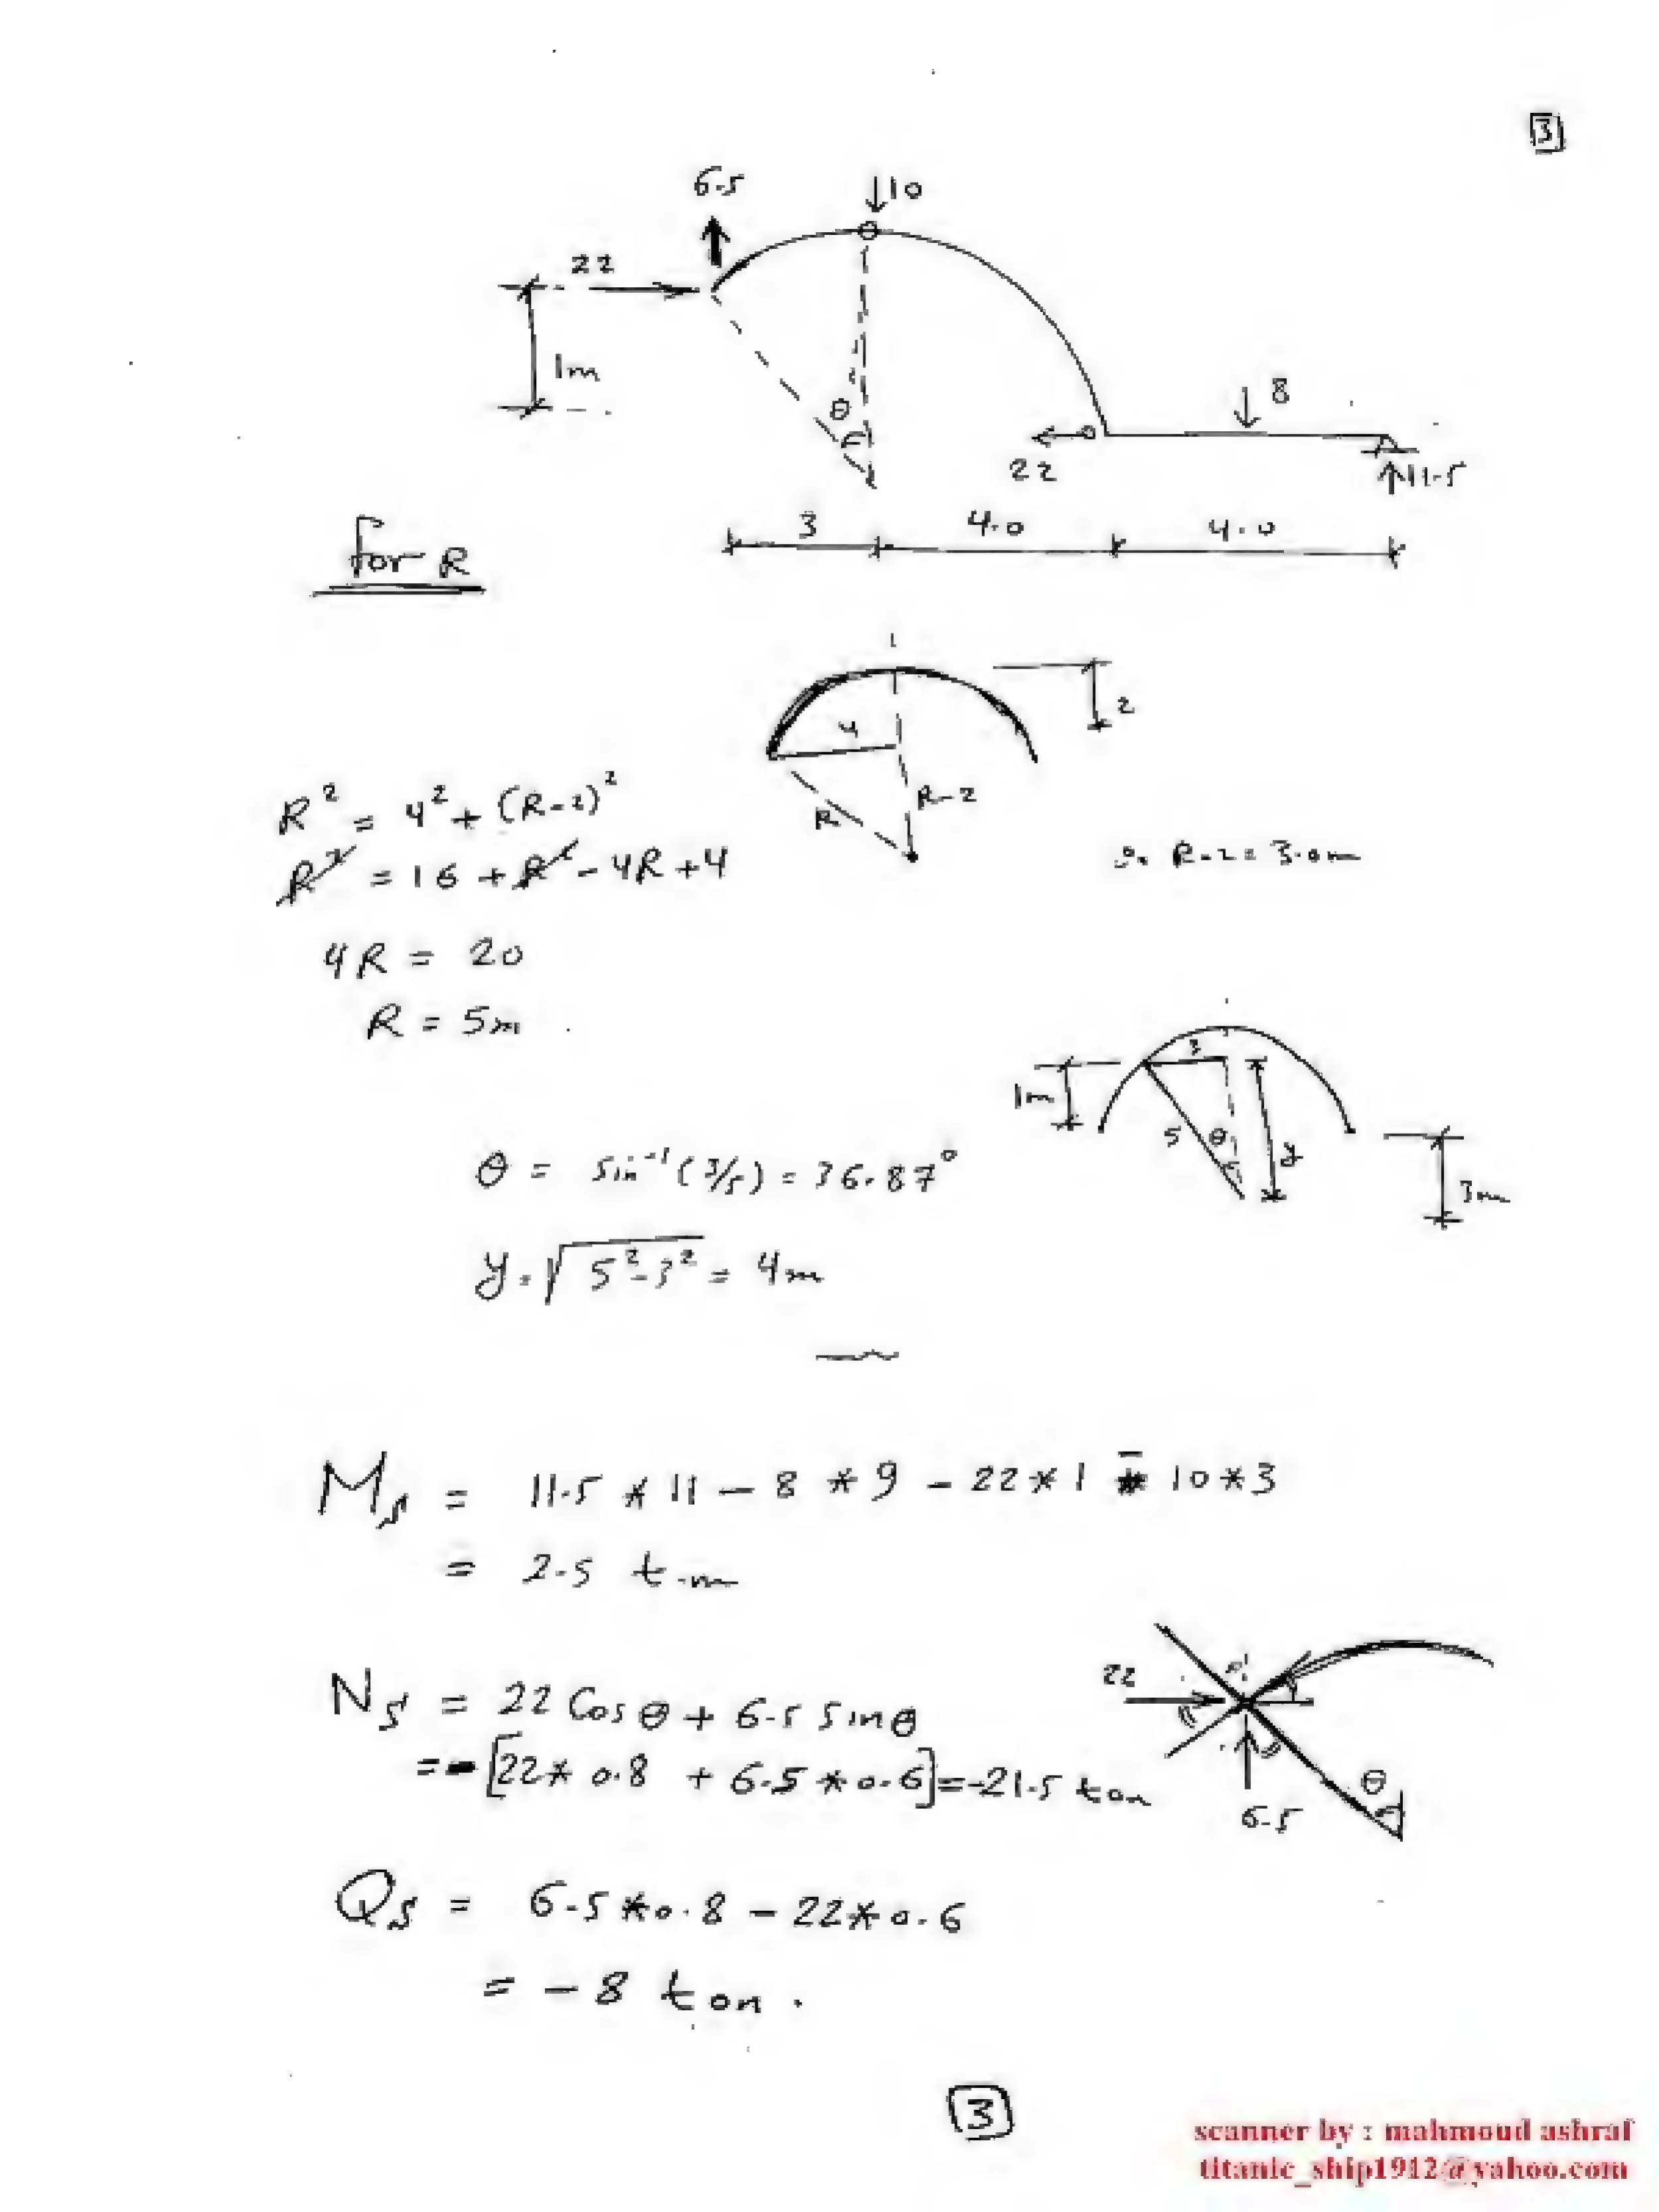 3
6.5
↓10
22
1m
θ
8
22
↑11.5
3 4.0 4.0
for R
2
4
R² = 4² + (R-2)²
R
R-2
R² = 16 + R² - 4R + 4
∴ R-2 = 3.0m
4R = 20
R = 5m
3
1m
5 θ y
θ = sin⁻¹(3/5) = 36.87°
3m
y = √5²-3² = 4m
Ms = 11.5 * 11 - 8 * 9 - 22 * 1 - 10 * 3
= 2.5 t.m
22
Ns = 22 Cos θ + 6.5 Sin θ
= - [22 * 0.8 + 6.5 * 0.6] = -21.5 ton
θ
6.5
Qs = 6.5 * 0.8 - 22 * 0.6
= - 8 ton.
3
scanner by : mahmoud ashraf
titanic_ship1912@yahoo.com